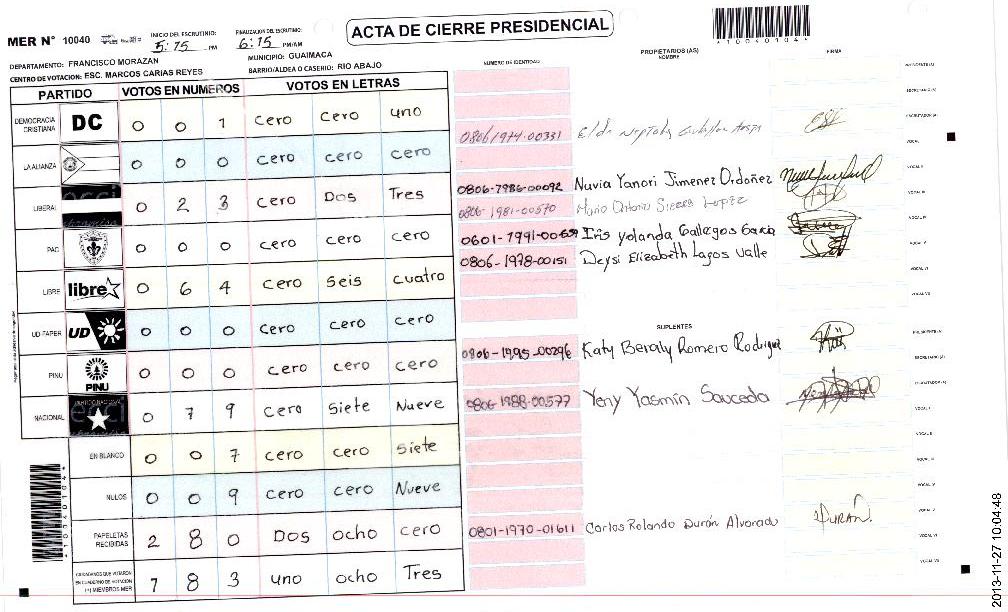 ACTA DE CIERRE PRESIDENCIAL
*10040104*
MER N° 10040
INICIO DEL ESCRUTINIO: 5:15 PM
FINALIZACION DEL ESCRUTINIO: 6:15 PM/AM
DEPARTAMENTO: FRANCISCO MORAZAN
MUNICIPIO: GUAIMACA
CENTRO DE VOTACION: ESC. MARCOS CARIAS REYES
BARRIO/ALDEA O CASERIO: RIO ABAJO
PARTIDO VOTOS EN NUMEROS VOTOS EN LETRAS
DEMOCRACIA CRISTIANA DC 0 0 1 cero cero uno
LA ALIANZA 0 0 0 cero cero cero
LIBERAL 0 2 3 cero Dos Tres
PAC 0 0 0 cero cero cero
LIBRE libre 0 6 4 cero seis cuatro
UD-FAPER UD 0 0 0 cero cero cero
PINU PINU 0 0 0 cero cero cero
NACIONAL 0 7 9 cero siete Nueve
EN BLANCO 0 0 7 cero cero siete
NULOS 0 0 9 cero cero Nueve
PAPELETAS RECIBIDAS 2 8 0 Dos ocho cero
CIUDADANOS QUE VOTARON EN CUADERNO DE VOTACION (+) MIEMBROS MER 1 8 3 uno ocho Tres
NUMERO DE IDENTIDAD
PROPIETARIOS (AS)
NOMBRE
FIRMA
0806-1974-00331
0806-1986-00092 Nuvia Yanori Jimenez Ordoñez
0806-1981-00570 Mario Lopez
Iris Yolanda Gallegos Garcia
0806-1978-00151 Deysi Elizabeth Lagos Valle
SUPLENTES
0806-1995-00296 Katy Beraly Romero Rodriguez
0806-1988-00577 Yeny Yasmin Sauceda
0801-1970-01611 Carlos Rolando Durón Alvorado DURÁN
PRESIDENTE (A)
SECRETARIO (A)
ESCRUTADOR (A)
VOCAL I
VOCAL II
VOCAL III
VOCAL IV
VOCAL V
VOCAL VI
VOCAL VII
PRESIDENTE (A)
SECRETARIO (A)
ESCRUTADOR (A)
VOCAL I
VOCAL II
VOCAL III
VOCAL IV
VOCAL V
VOCAL VI
VOCAL VII
*10040104*
2013-11-27 10:04:48